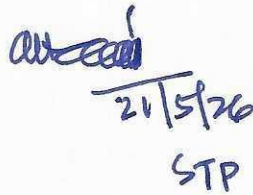 21/5/26
STP